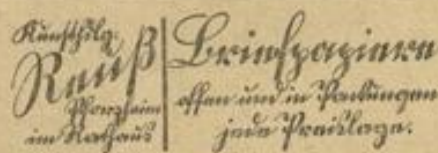 Kunsthdlg.
Reuß
Pforzheim
im Rathaus
Briefpapiere
offen und in Packungen
jede Preislage.